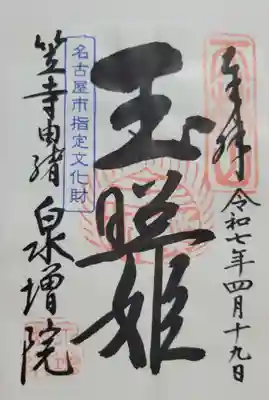 奉拝
令和七年四月十九日
玉照姫
名古屋市指定文化財
笠寺由緒
泉増院